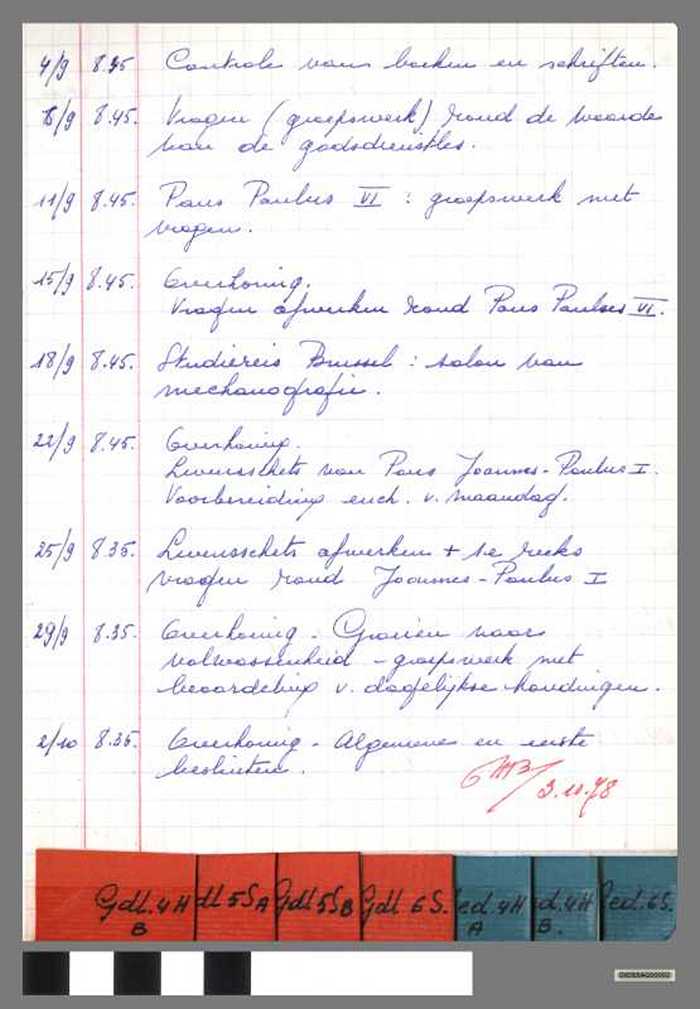 4/9 8.45 Controle van boeken en schriften.
8/9 8.45. Vragen (groepswerk) rond de waarde
van de godsdienstles.
11/9 8.45. Paus Paulus VI : groepswerk met
vragen.
15/9 8.45. Overhoring.
Vragen afwerken rond Paus Paulus VI.
18/9 8.45. Studiereis Brussel : salon van
mechanografie.
22/9 8.45. Overhoring.
Levensschets van Paus Joannes-Paulus I.
Voorbereiding euch. v. maandag.
25/9 8.35. Levensschets afwerken + 1e reeks
vragen rond Joannes-Paulus I
29/9 8.35. Overhoring - Groeien naar
volwassenheid - groepswerk met
beoordeling v. dagelijkse houdingen.
2/10 8.35. Overhoring - Algemene en eerste
besluiten.
3.10.78
Gdl.4H
B
dl 5S A
Gdl 5S B
Gdl 6S.
ed.4H
A
d.4H
B.
ed.6S.